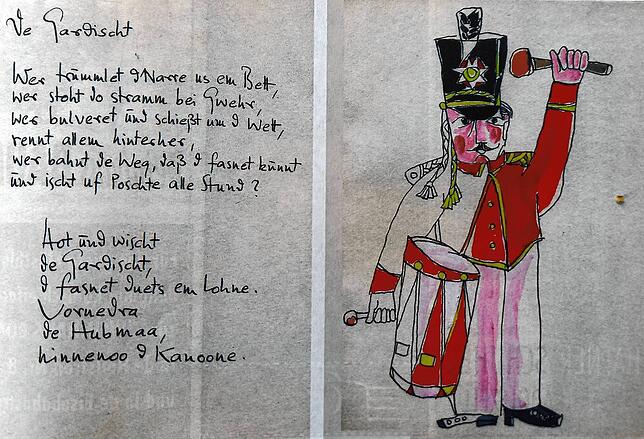 De Gardischt
Wer trümmlet d Narre us em Bett,
wer stoht do stramm bei Gwehr,
wer bulveret und schießt um d Wett,
rennt allem hinterher,
wer bahnt de Weg, daß d Fasnet kunnt
und ischt uf Poschte alle Stund?
Hot und wischt
de Gardischt,
d Fasnet duets em lohne.
Vornedra
de Hubmaa,
hinnenoo d Kanoone.